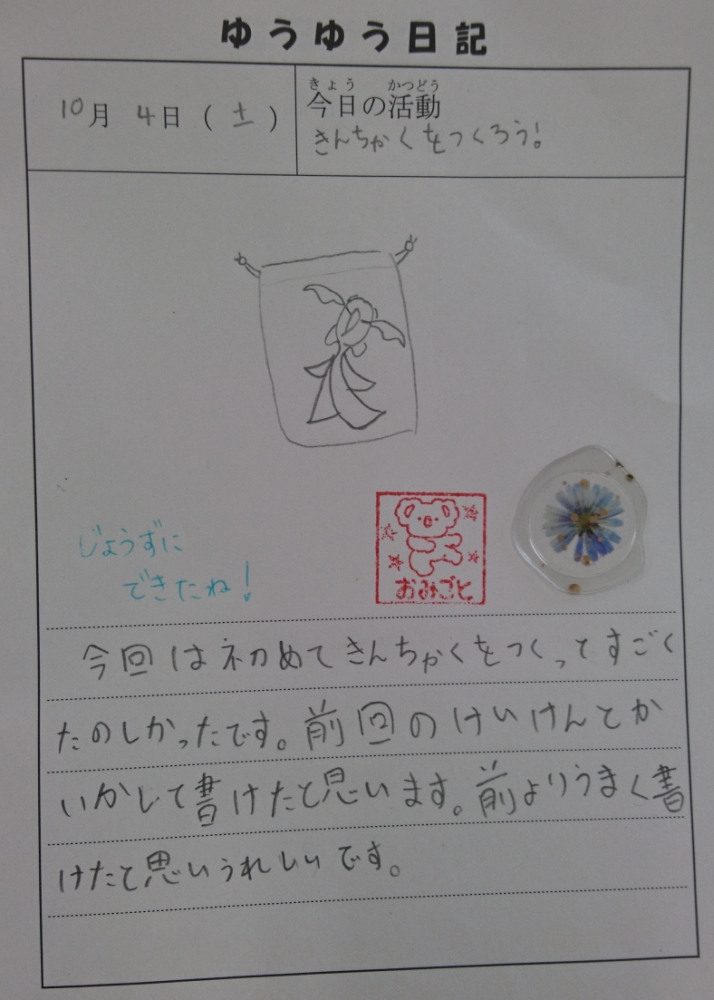 ゆうゆう日記
10月 4日 (土)
きょう かつどう
今日の活動
きんちゃくをつくろう!
じょうずに
できたね!
おみごと
今回は初めてきんちゃくをつくってすごく
たのしかったです。前回のけいけんとか
いかして書けたと思います。前よりうまく書
けたと思いうれしいです。